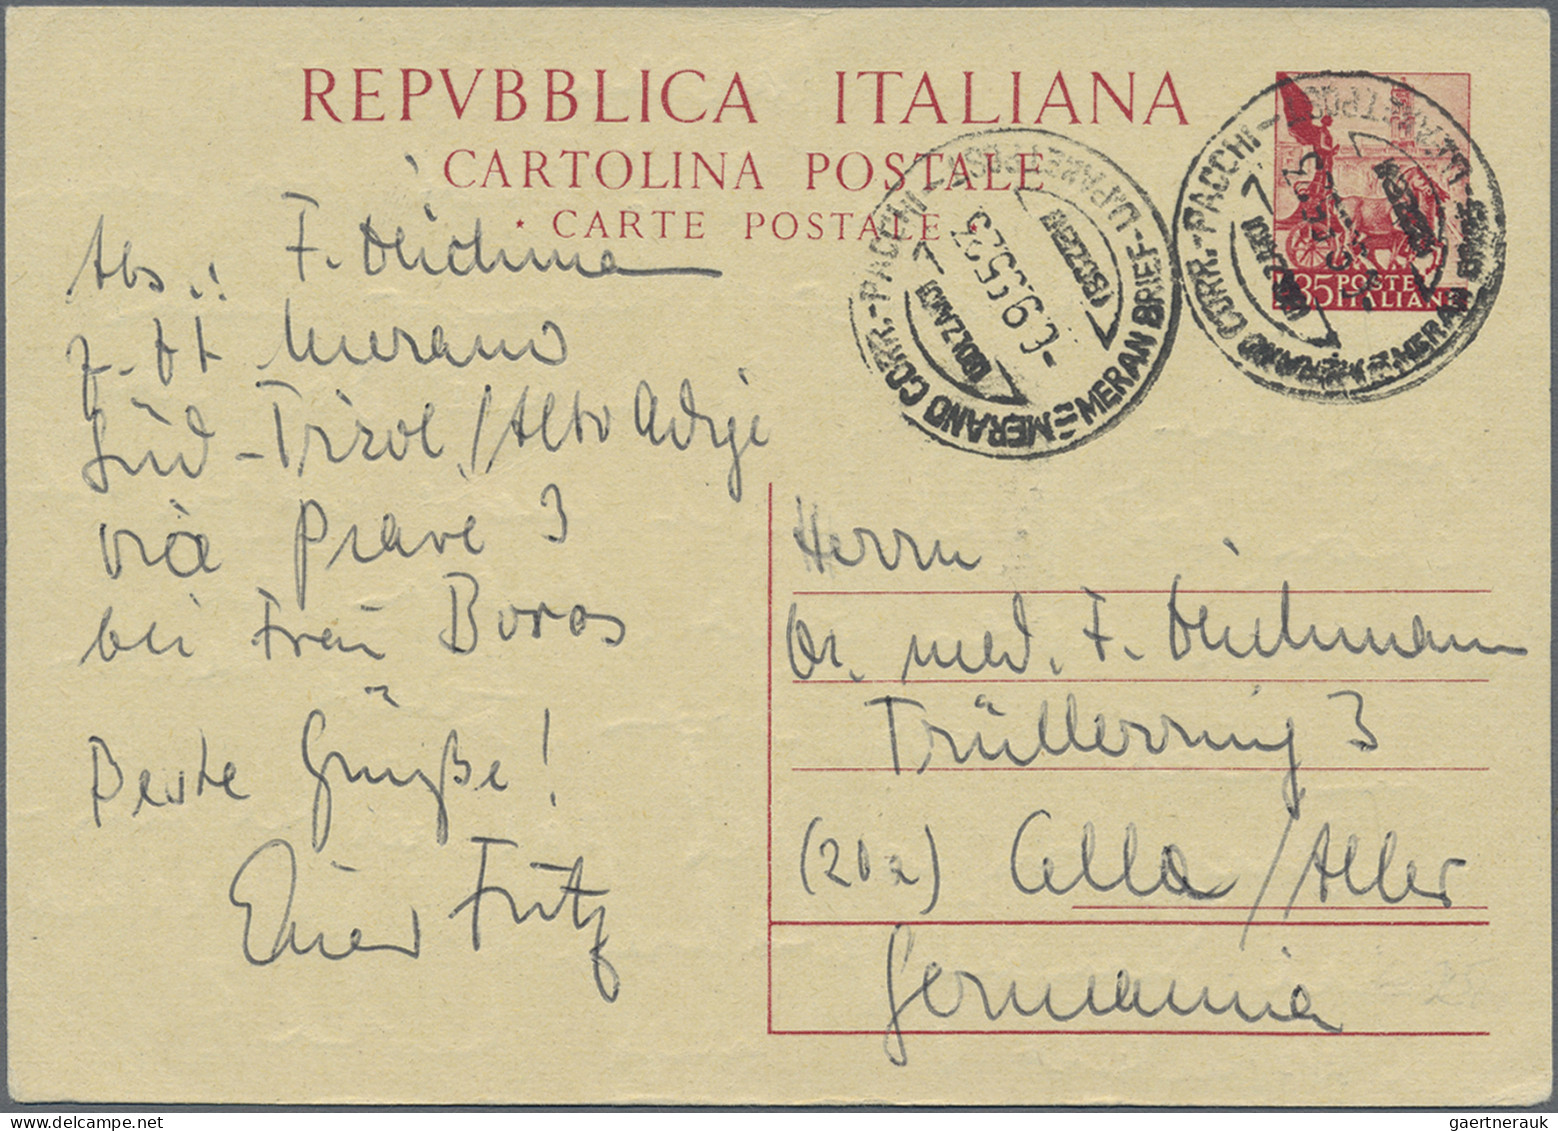 REPVBBLICA ITALIANA
CARTOLINA POSTALE
* CARTE POSTALE *
35 POSTE ITALIANE
MERANO CORR.-PACCHI - MERAN BRIEF-U.PAKETPOST
(BOLZANO) (BOZEN)
MERANO CORR.-PACCHI - MERAN BRIEF-U.PAKETPOST
(BOLZANO)
Abs.: F.
z. Zt. Merano
Süd-Tirol/Alto Adige
via Piave 3
bei Frau Boros
Beste Grüße!
Euer Fritz
Herrn
Dr. med. F.
Trüllerring 3
(20a) Celle/Aller
Germania
gaertnerauk